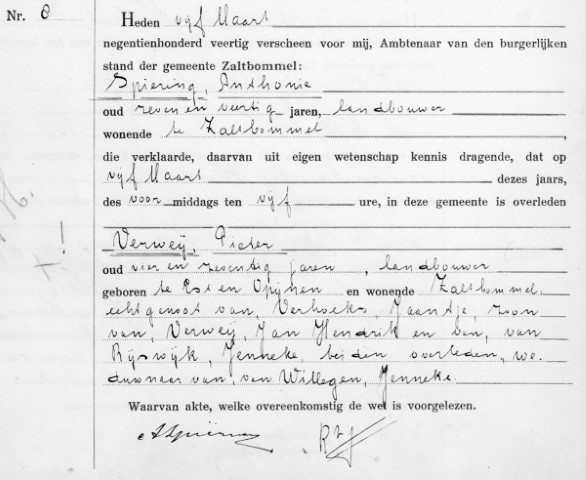 Nr. 8
Heden vijf Maart
negentienhonderd veertig verscheen voor mij, Ambtenaar van den burgerlijken
stand der gemeente Zaltbommel:
Spiering, Anthonie
oud zeven en veertig jaren, landbouwer
wonende te Zaltbommel
die verklaarde, daarvan uit eigen wetenschap kennis dragende, dat op
vijf Maart dezes jaars,
des voor middags ten vijf ure, in deze gemeente is overleden
Verweij, Pieter
oud vier en zeventig jaren, landbouwer
geboren te Est en Opijnen en wonende Zaltbommel,
echtgenoot van, Verhoeks, Jaantje, zoon
van, Verweij, Jan Hendrik en van, van
Rijswijk, Jenneke, beiden overleden, we-
duwnaar van, van Willegen, Jenneke.
Waarvan akte, welke overeenkomstig de wet is voorgelezen.
A Spiering